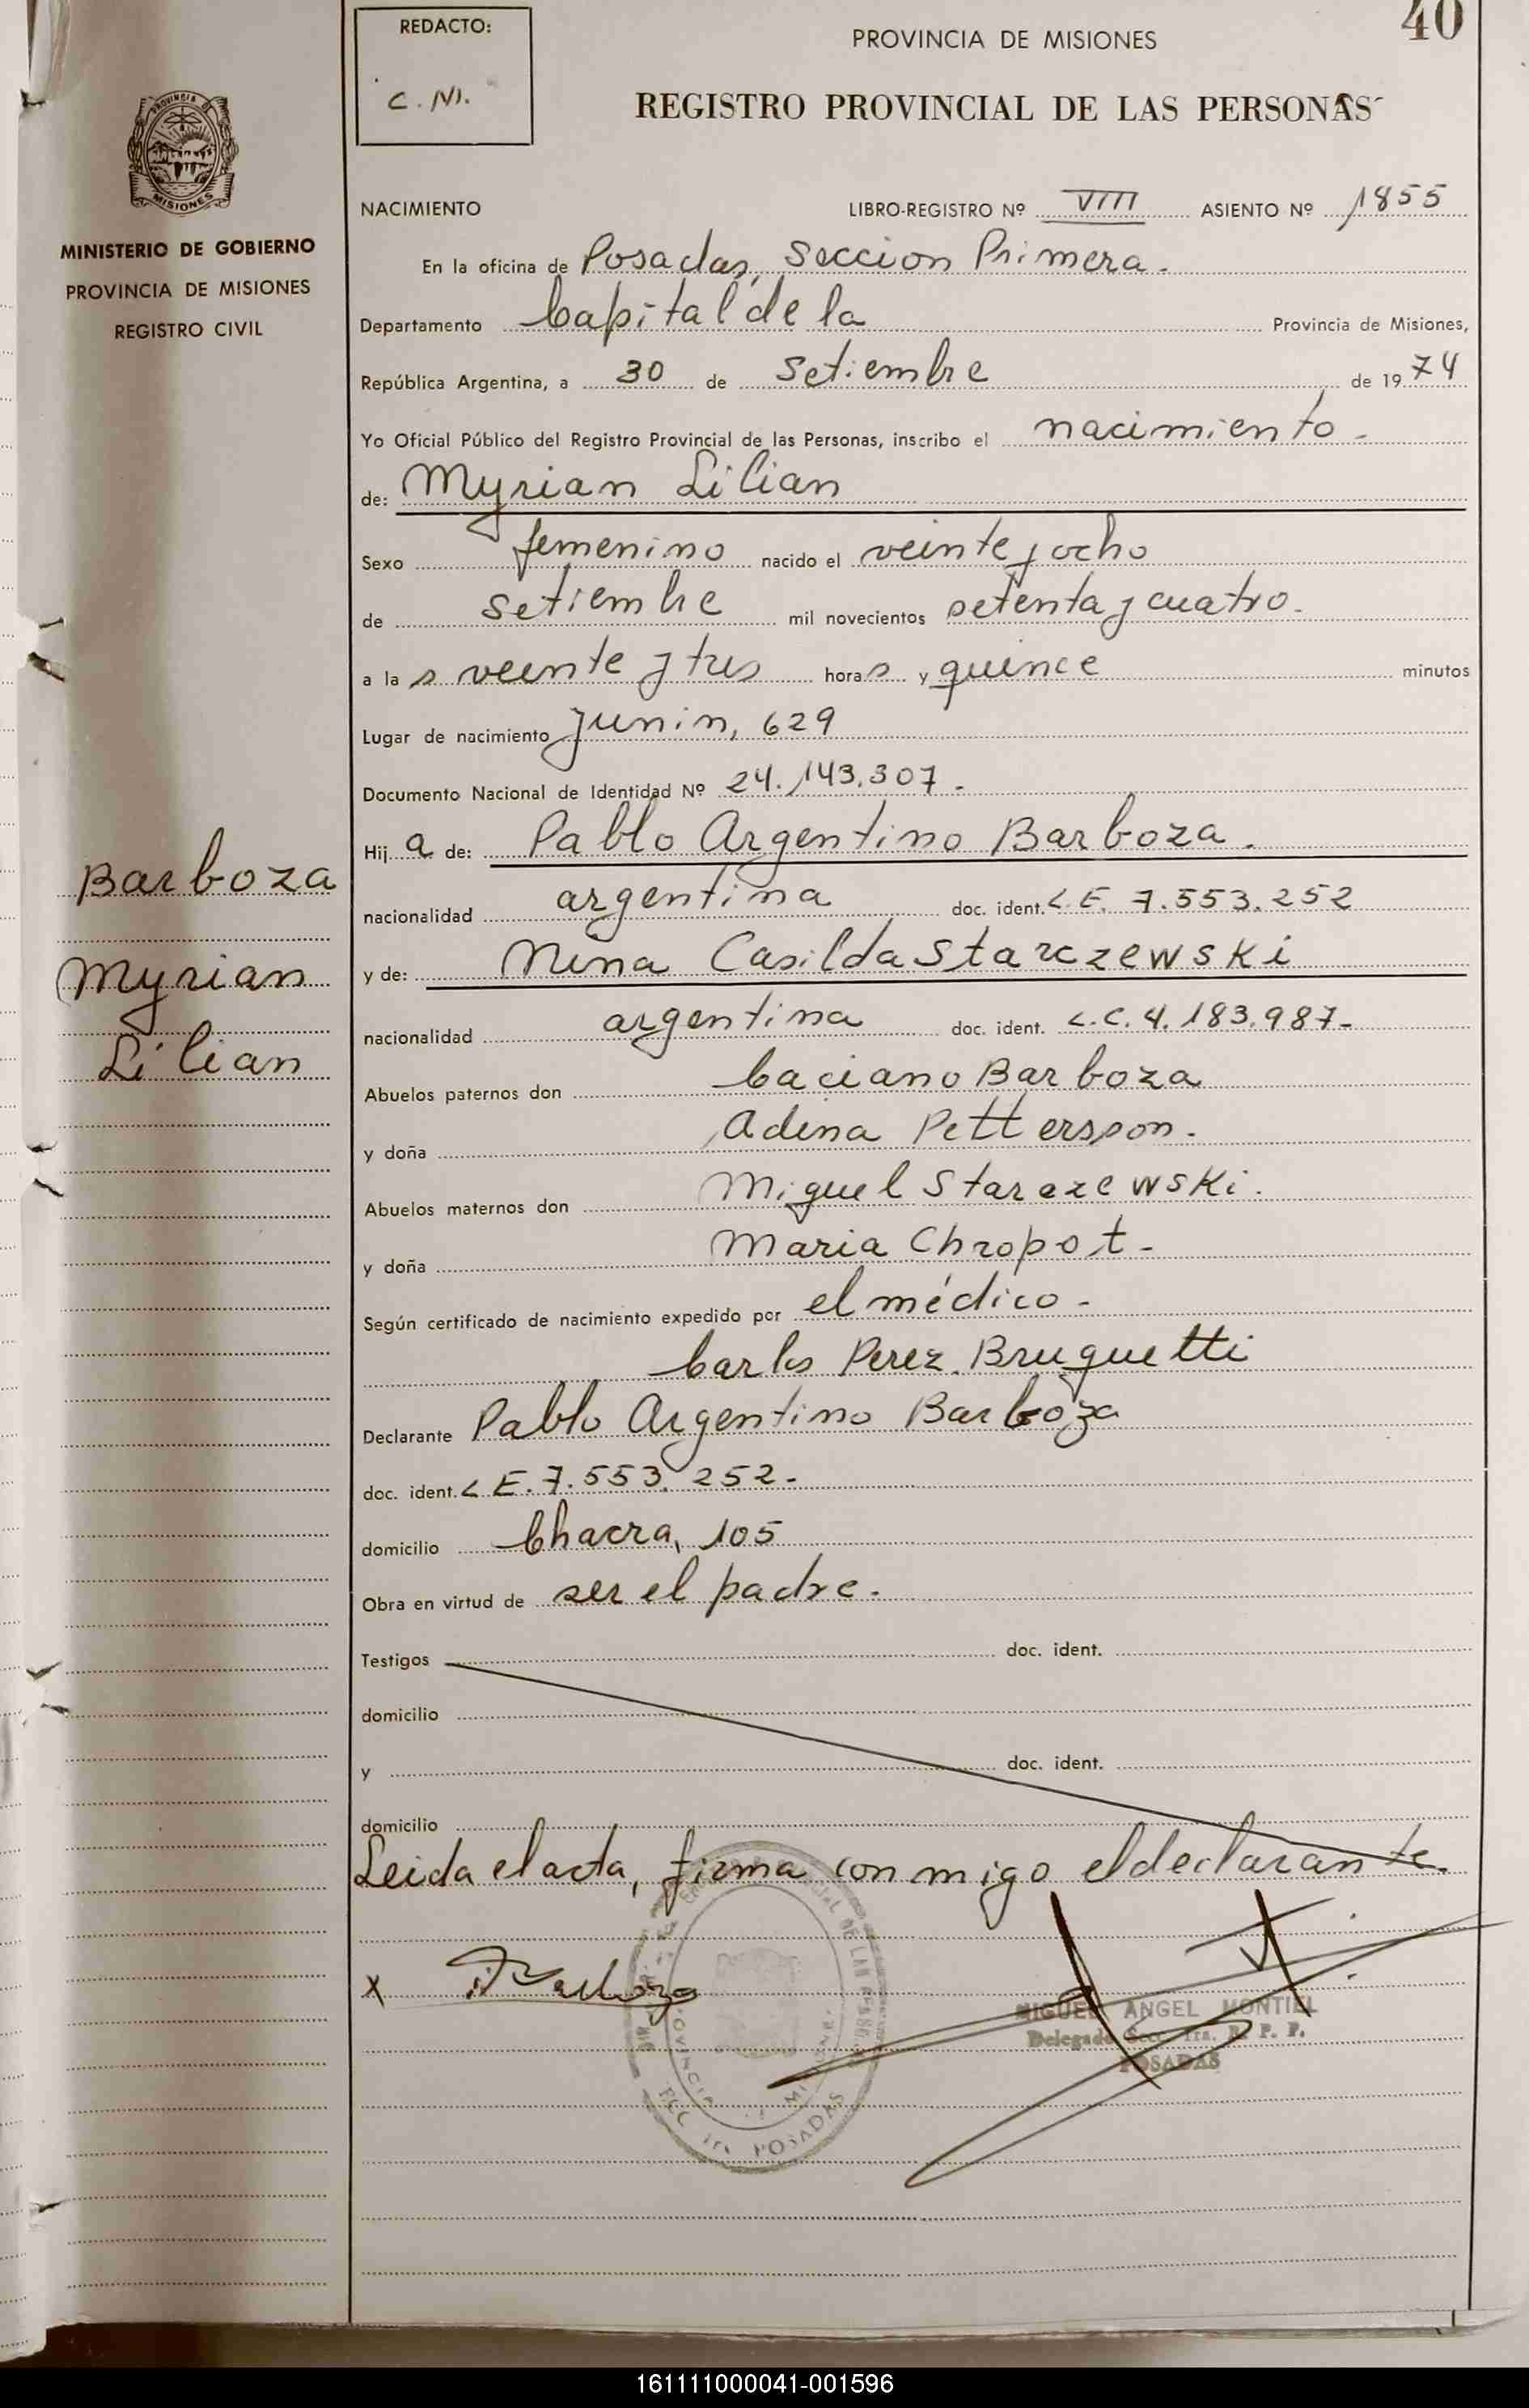 40
REDACTO:
C. M.
PROVINCIA DE MISIONES
REGISTRO PROVINCIAL DE LAS PERSONAS
PROVINCIA DE
MISIONES
MINISTERIO DE GOBIERNO
PROVINCIA DE MISIONES
REGISTRO CIVIL
NACIMIENTO LIBRO-REGISTRO Nº VIII ASIENTO Nº 1855
En la oficina de Posadas, Seccion Primera.
Departamento Capital de la Provincia de Misiones,
República Argentina, a 30 de Setiembre de 1974
Yo Oficial Público del Registro Provincial de las Personas, inscribo el nacimiento.
de: Myrian Lilian
Sexo femenino nacido el veinte y ocho
de setiembre mil novecientos setenta y cuatro.
a las veinte y tres horas y quince minutos
Lugar de nacimiento Junin, 629
Documento Nacional de Identidad Nº 24.143.307.
Hija de: Pablo Argentino Barboza.
nacionalidad argentina doc. ident. L.E. 7.553.252
y de: Nena Casilda Starczewski
nacionalidad argentina doc. ident. L.C. 4.183.987-
Abuelos paternos don Caciano Barboza
y doña Adina Pettersson.
Abuelos maternos don Miguel Starczewski.
y doña Maria Chropot-
Según certificado de nacimiento expedido por el médico-
Carlos Perez Bruguetti
Declarante Pablo Argentino Barboza
doc. ident. L E. 7.553.252-
domicilio Chacra, 105
Obra en virtud de ser el padre.
Testigos doc. ident.
domicilio
y doc. ident.
domicilio
Leida el acta, firma conmigo el declarante.
Barboza
Myrian
Lilian
x Barboza
MIGUEL ANGEL MONTIEL
Delegado Secc. 1ra. R. P. P.
POSADAS
161111000041-001596